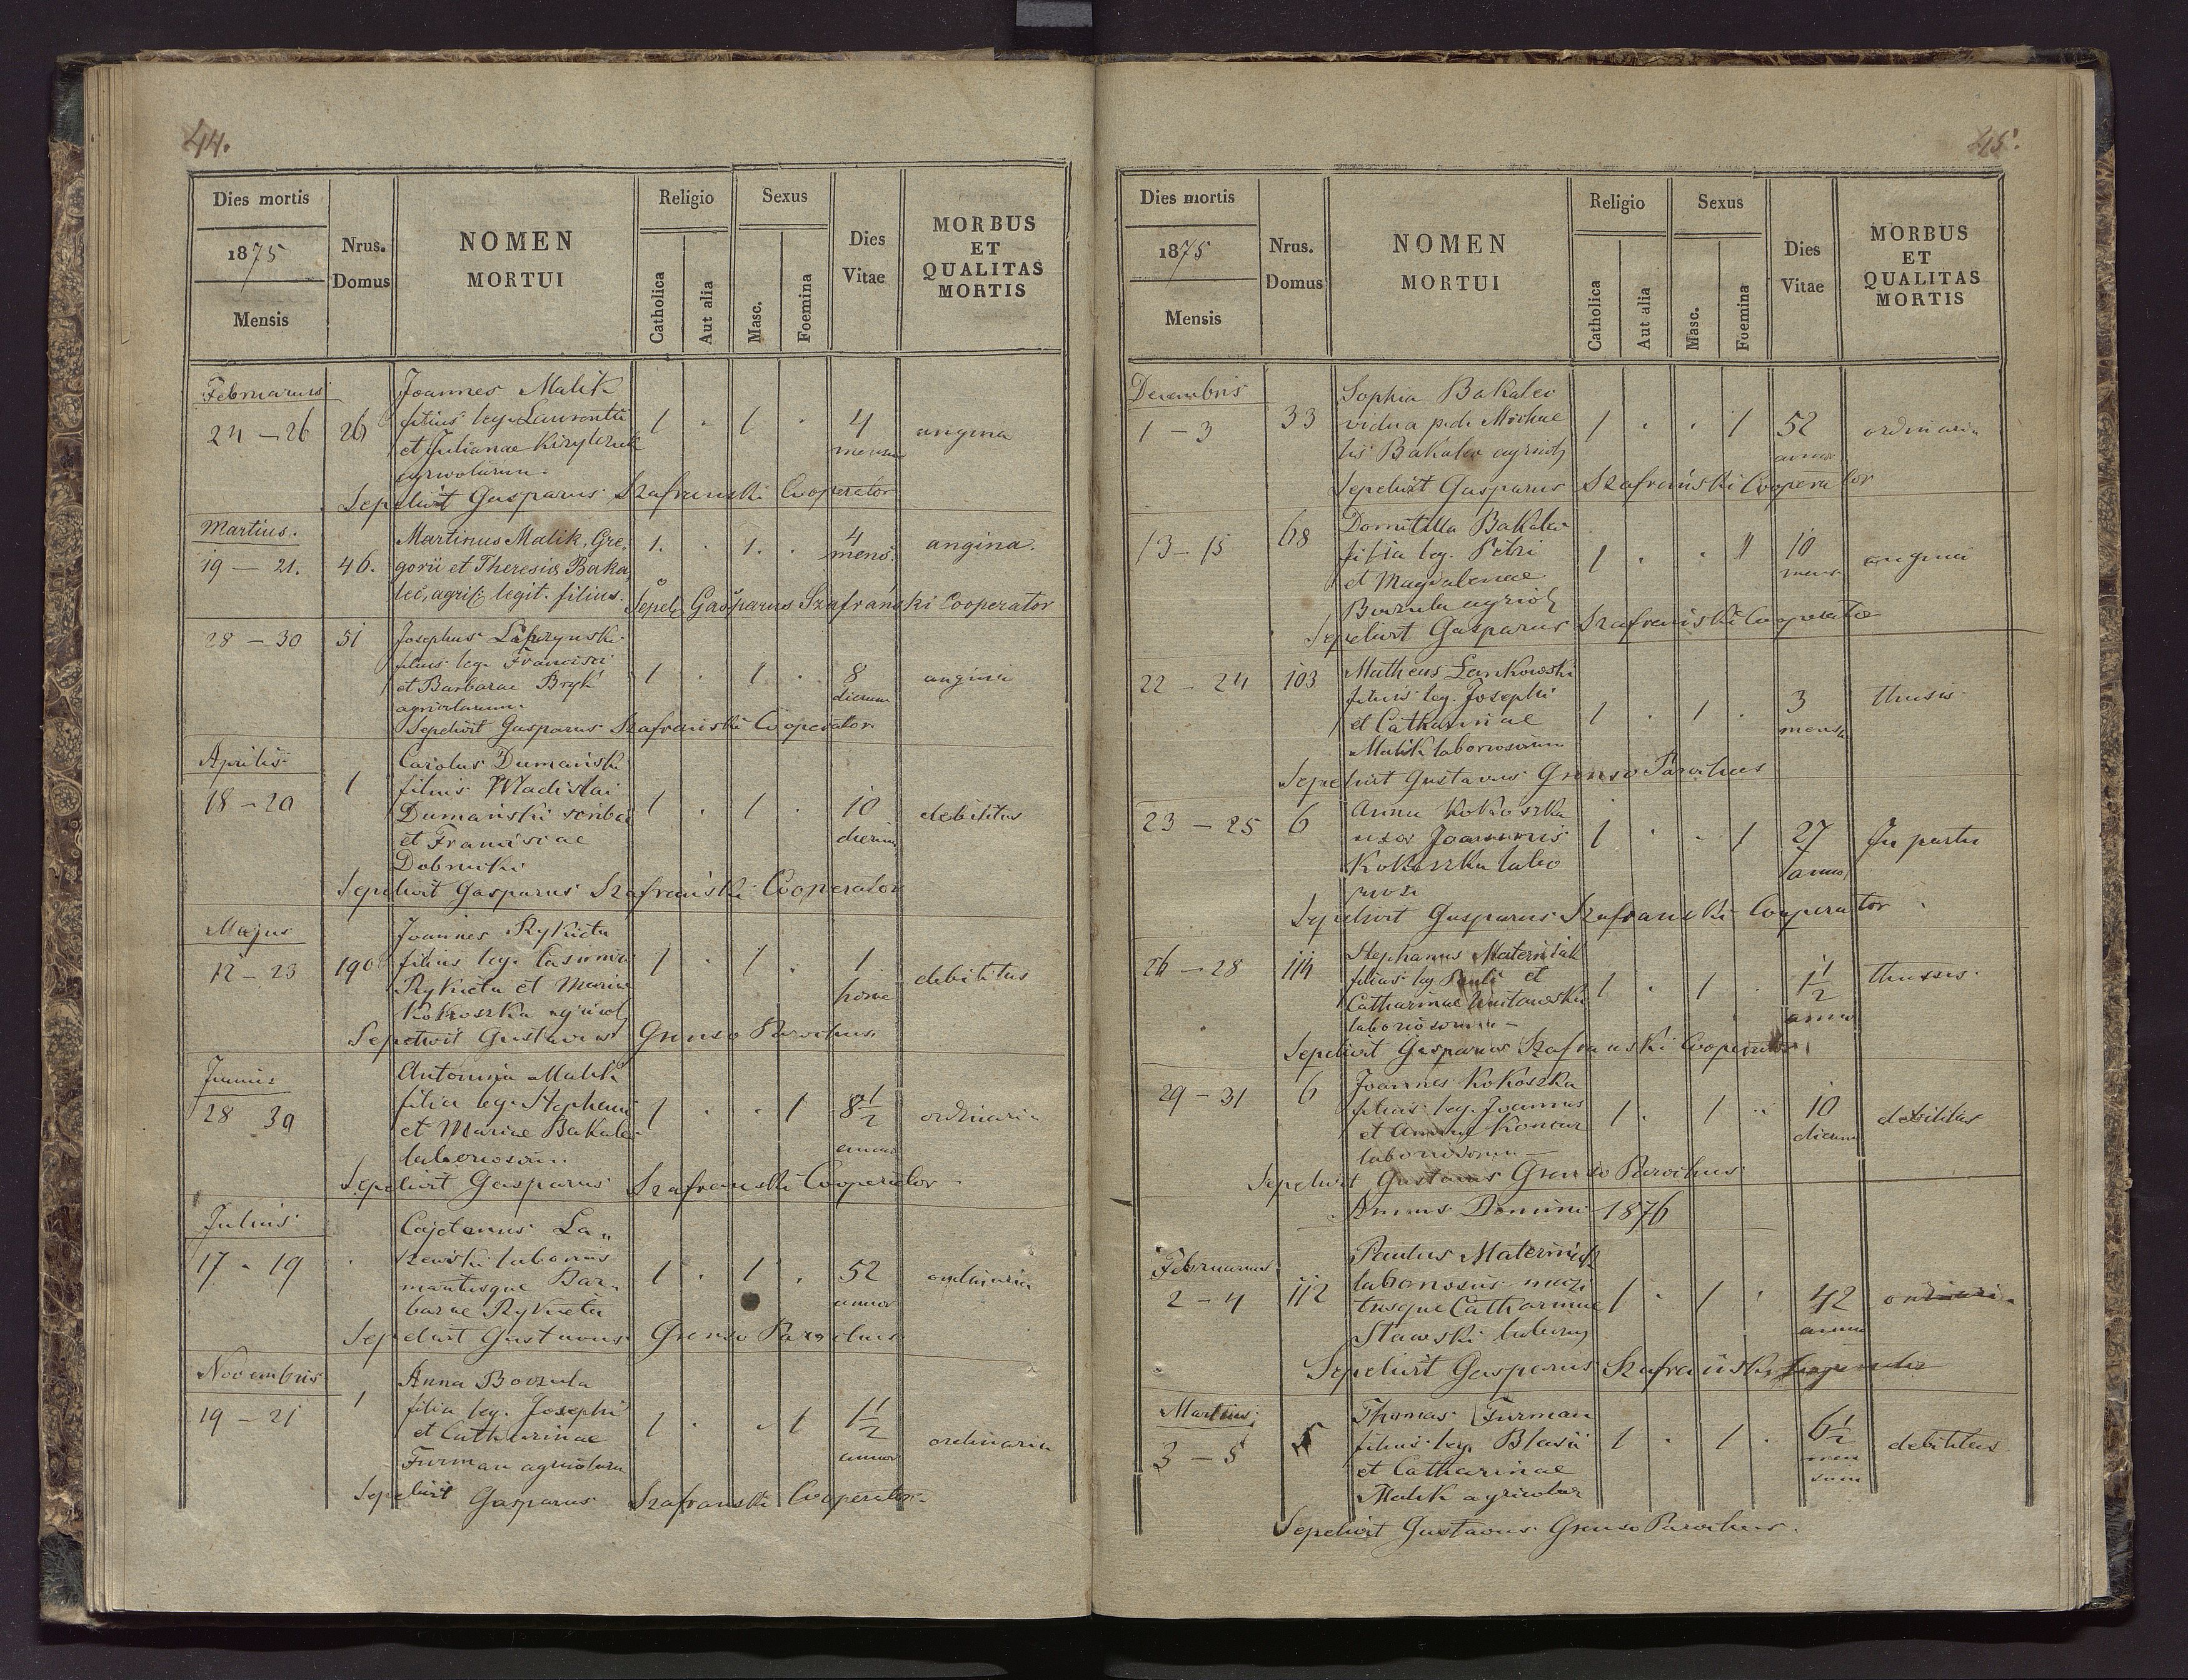 44.
Dies mortis
1875
Mensis
Nrus.
Domus
NOMEN
MORTUI
Religio
Catholica
Aut alia
Sexus
Masc.
Foemina
Dies
Vitae
MORBUS
ET
QUALITAS
MORTIS
Februarius
24 — 26 26 Joannes Malik
filius leg. Laurentii 1 . 1 . 4 angina
et Julianae
agricolarum.
Sepelivit Gasparus Szafrański Cooperator
Martius.
19 — 21. 46. Martinus Malik, Gre- 1. . 1. . 4 mens. angina.
gorii et Theresia Baka
leć, agric: legit. filius.
Sepel. Gasparus Szafrański Cooperator
28 — 30 51 Josephus
filius leg. Francisci
et Barbarae Bryk 1 . 1 . 8 dierum angina
agricolarum.
Sepelivit Gasparus Szafrański Cooperator
Aprilis
18 - 20 1 Carolus Dumański
filius Wladislai
Dumański scribae 1 . 1 . 10 dierum debilitas
et Franciscae
Dobrucki
Sepelivit Gasparus Szafrański Cooperator
Majus
12 - 23 190 Joannes Rykieta
filius leg. Casimiri 1 . 1 . 1 horae debilitas
Rykieta et Mariae
Kokoszka agricol
Sepelivit Gustavus Grenso Parochus.
Junius
28 30 Antonina Malik
filia leg. Stephani 1 . . 1 8 1/2 annor ordinaria
et Mariae Bakaleć
laboriosorum.
Sepelivit Gasparus Szafrański Cooperator
Julius
17 - 19 . Cajetanus La„
szewski laboriosus
maritusque Bar- 1 . 1 . 52 annor ordinaria
barae Rykieta
Sepelivit Gustavus Grenso Parochus
Novembris
19 — 21 1 Anna Borzula
filia leg. Josephi 1 . . 1 1 1/2 annor ordinaria
et Catharinae
Furman agricolarum
Sepelivit Gasparus Szafrański Cooperator.
45.
Dies mortis
1875
Mensis
Nrus.
Domus
NOMEN
MORTUI
Religio
Catholica
Aut alia
Sexus
Masc.
Foemina
Dies
Vitae
MORBUS
ET
QUALITAS
MORTIS
Decembris
1 — 3 33 Sophia Bakaleć
vidua p.d. Michae 1 . . 1 52 annor ordinaria
lis Bakaleć agricol
Sepelivit Gasparus Szafrański Cooperator
13 — 15 68 Domitilla Bakaleć
filia leg. Petri 1 . . 1 10 mens angina
et Magdalenae
Borzula agricol
Sepelivit Gasparus Szafrański Cooperator
22 — 24 103 Matheus Lankowski
filius leg. Josephi
et Catharinae 1 . 1 . 3 mens thusis
Malik laboriosorum
Sepelivit Gustavus Grenso Parochus
23 — 25 6 Anna Kokoszka
uxor Joannis 1 . . 1 27 annor In partu
Kokoszka labo
riosi
Sepelivit Gasparus Szafrański Cooperator
26 — 28 114 Stephanus Materniak
filius leg Pauli et
Catharinae 1 . 1 . 1 1/2 annor thussis
laboriosorum —
Sepelivit Gasparus Szafrański Cooperator
29 — 31 6 Joannes Kokoszka
filius leg. Joannis 1 . 1 . 10 dierum debilitas
et Annae Koncur
laboriosorum —
Sepelivit Gustavus Grenso Parochus
Annus Domini 1876
Februarius
2 — 4 112 Paulus Materniak
laboriosus mari
tusque Catharinae 1 . 1 . 42 annor ordinaria
Stawski laborios
Sepelivit Gasparus Szafrański Cooperator
Martius
3 — 5 5 Thomas Furman
filius leg. Blasii 1 . 1 . 6 1/2 men
sium debilitas
et Catharinae
Malik agricolar
Sepelivit Gustavus Grenso Parochus.